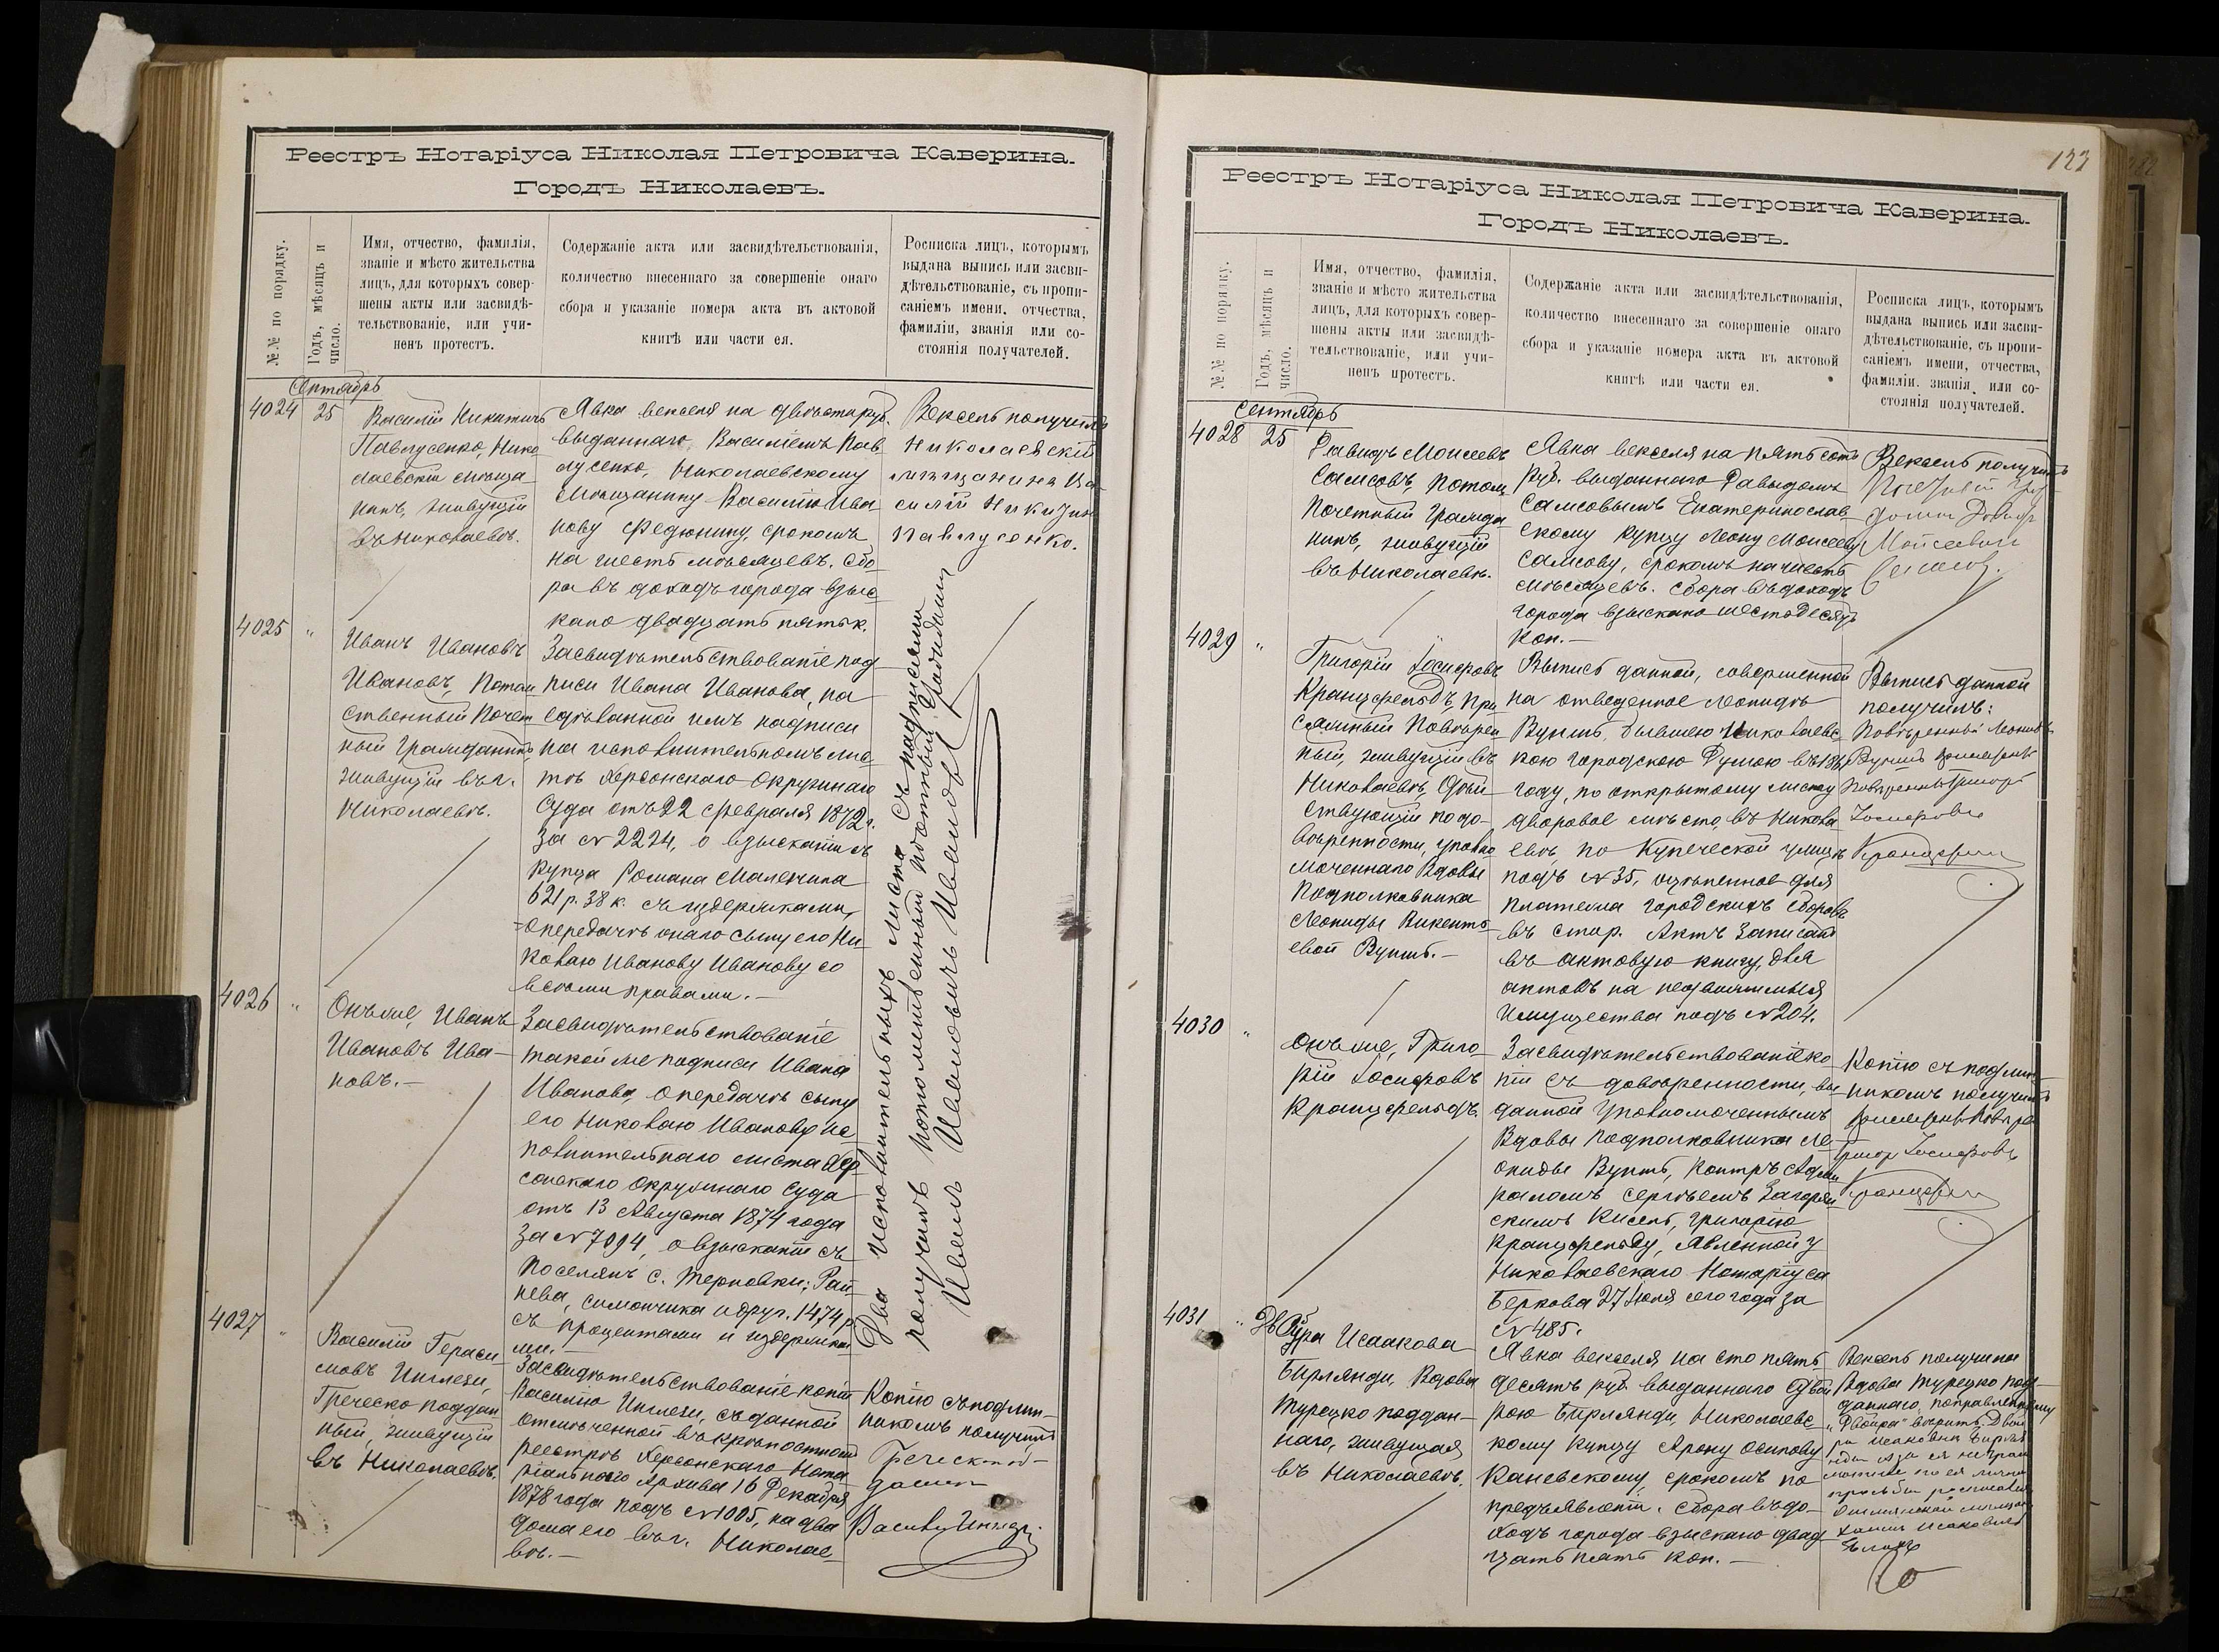 Реестръ Нотаріуса Николая Петровича Каверина.
Городъ Николаевъ.
№№ по порядку.
Годъ, мѣсяцъ и
число.
Имя, отчество, фамилія,
званіе и мѣсто жительства
лицъ, для которыхъ совер-
шены акты или засвидѣ-
тельствованіе, или учи-
ненъ протестъ.
Содержаніе акта или засвидѣтельствованія,
количество внесеннаго за совершеніе онаго
сбора и указаніе номера акта въ актовой
книгѣ или части ея.
Росписка лицъ, которымъ
выдана выпись или засви-
дѣтельствованіе, съ пропи-
саніемъ имени, отчества,
фамиліи, званія или со-
стоянія получателей.
Сентябрь
4024
25
Василій Никитичъ
Павлусенко, Нико
лаевскій мѣща
нинъ, живущій
въ Николаевѣ.
Явка векселя на двѣстируб.
выданнаго Василіемъ Пав
лусенко, Николаевскому
мѣщанину Василію Ива
нову Федюнину, срокомъ
на шесть мѣсяцевъ. Сбо
ра въ доходъ города взыс
кано двадцать пять к.
Вексель получилъ
Николаевскій
мѣщанинъ Ва
силій Никитин
Павлусенко.
4025
"
Иванъ Ивановъ
Ивановъ, Потом
ственный Почет
ный Гражданинъ,
живущій въ г.
Николаевѣ.
Засвидѣтельствованіе под
писи Ивана Иванова, на
сдѣланной имъ надписи
на исполнительномъ лис
тѣ Херсонскаго Окружнаго
Суда отъ 22 Февраля 1872 г.
за № 2224, о взысканіи съ
купца Романа Маленина
621 р. 38 к. съ издержками,
о передачѣ онаго сыну его Ни
колаю Иванову Иванову со
всѣми правами.—
4026
"
Онъ же, Иванъ
Ивановъ Ива—
новъ.—
Засвидѣтельствованіе
такой же подписи Ивана
Иванова, о передачѣ сыну
его Николаю Иванову Ис
полнительнаго листа Хер
сонскаго Окружнаго Суда
отъ 13 Августа 1874 года
за № 7094, о взысканіи съ
Поселянъ с. Терновки: Рай
нева, Симончика и друг. 1474 р.
съ процентами и издержка
ми.—
Два исполнительныхъ листа съ надписями
получилъ потомственный почетный гражданин
Иван Иванович Иванов
4027
"
Василій Гераси
мовъ Инглези,
Греческо поддан
ный, живущій
въ Николаевѣ.
Засвидѣтельствованіе копіи
Василію Инглези, съ данной
отмѣченной въ крѣпостномъ
реестрѣ Херсонскаго Нота
ріальнаго Архива 16 Декабря
1878 года подъ № 1005, на два
дома его въ г. Николае
вѣ.—
Копію съ подлин—
никомъ получилъ
Греческопод—
данны
Василій Инглези
127
Реестръ Нотаріуса Николая Петровича Каверина.
Городъ Николаевъ.
№№ по порядку.
Годъ, мѣсяцъ и
число.
Имя, отчество, фамилія,
званіе и мѣсто жительства
лицъ, для которыхъ совер-
шены акты или засвидѣ-
тельствованіе, или учи-
ненъ протестъ.
Содержаніе акта или засвидѣтельствованія,
количество внесеннаго за совершеніе онаго
сбора и указаніе номера акта въ актовой
книгѣ или части ея.
Росписка лицъ, которымъ
выдана выпись или засви-
дѣтельствованіе, съ пропи-
саніемъ имени, отчества,
фамиліи, званія или со-
стоянія получателей.
Сентябрь
4028
25
Давидъ Моисеевъ
Самсовъ, Потом.
Почетный Гражда
нинъ, живущій
въ Николаевѣ.
Явка векселя на пятьсотъ
руб. выданнаго Давыдомъ
Самсовымъ Екатеринослав
скому купцу Леону Моисееву
Самсову, срокомъ на шесть
мѣсяцевъ. Сбора въ доходъ
города взыскано шестьдесятъ
коп.—
Вексель получилъ
Почетный
Давид
Мойсеевич
Самсов.
4029
"
Григорій Іосифовъ
Кранцфельдъ, При
сяжный Повѣрен
ный, живущій въ
Николаевѣ, дѣй—
ствующій по до—
вѣренности, уполно
моченнаго Вдовы
Подполковника
Леониды Викенть
евой Вуншъ.—
Выпись данной, совершенной
на отведенное Леонидѣ
Вуншъ, бывшею Николаевс
кою Городскою Думою въ
году, по открытому листу
дворовое мѣсто, въ Никола
евѣ, по Купеческой улицѣ
подъ № 35, оцѣненное для
платежа городскихъ сборовъ
въ стор. Актъ записанъ
въ актовую книгу, для
актовъ на недвижимыя
имущества подъ № 204.
Выпись данной
получилъ:
Повѣренный Леониды
Вуншъ присяжный
повѣренный Григорій
Іосифовъ
Кранцфельд
4030
"
Онъ же, Григо
рій Іосифовъ
Кранцфельдъ.
Засвидѣтельствованіе ко
піи съ довѣренности, вы
данной уполномоченнымъ
Вдовы Подполковника Ле—
ониды Вуншъ, Контръ Адми
раломъ Сергѣемъ Загорян
скимъ Кисель, Григорію
Кранцфельду, явленной у
Николаевскаго Нотаріуса
Беркова 27 Іюля сего года за
№ 485.
Копію съ подлин—
никомъ получилъ
присяжный повѣрен
Григор Іосифовъ
Кранцфельд
4031
"
Двойра Исаакова
Бирлянди, Вдова
турецко поддан—
наго, живущая
въ Николаевѣ.
Явка векселя на сто пять
десятъ руб. выданнаго Двой
рою Бирлянди, Николаевс
кому купцу Арону Осипову
Каневскому, срокомъ по
предъявленіи. Сбора въ до—
ходъ города взыскано двад
цать пять коп.—
Вексель получила
Вдова Турецко под—
даннаго, поправленному
„Двойра" вѣрить. Двой
ра Исаковна Бирлян
нди а за ея неграм
мотностью по ея личной
просьбѣ росписался
мѣщан
Исаковъ